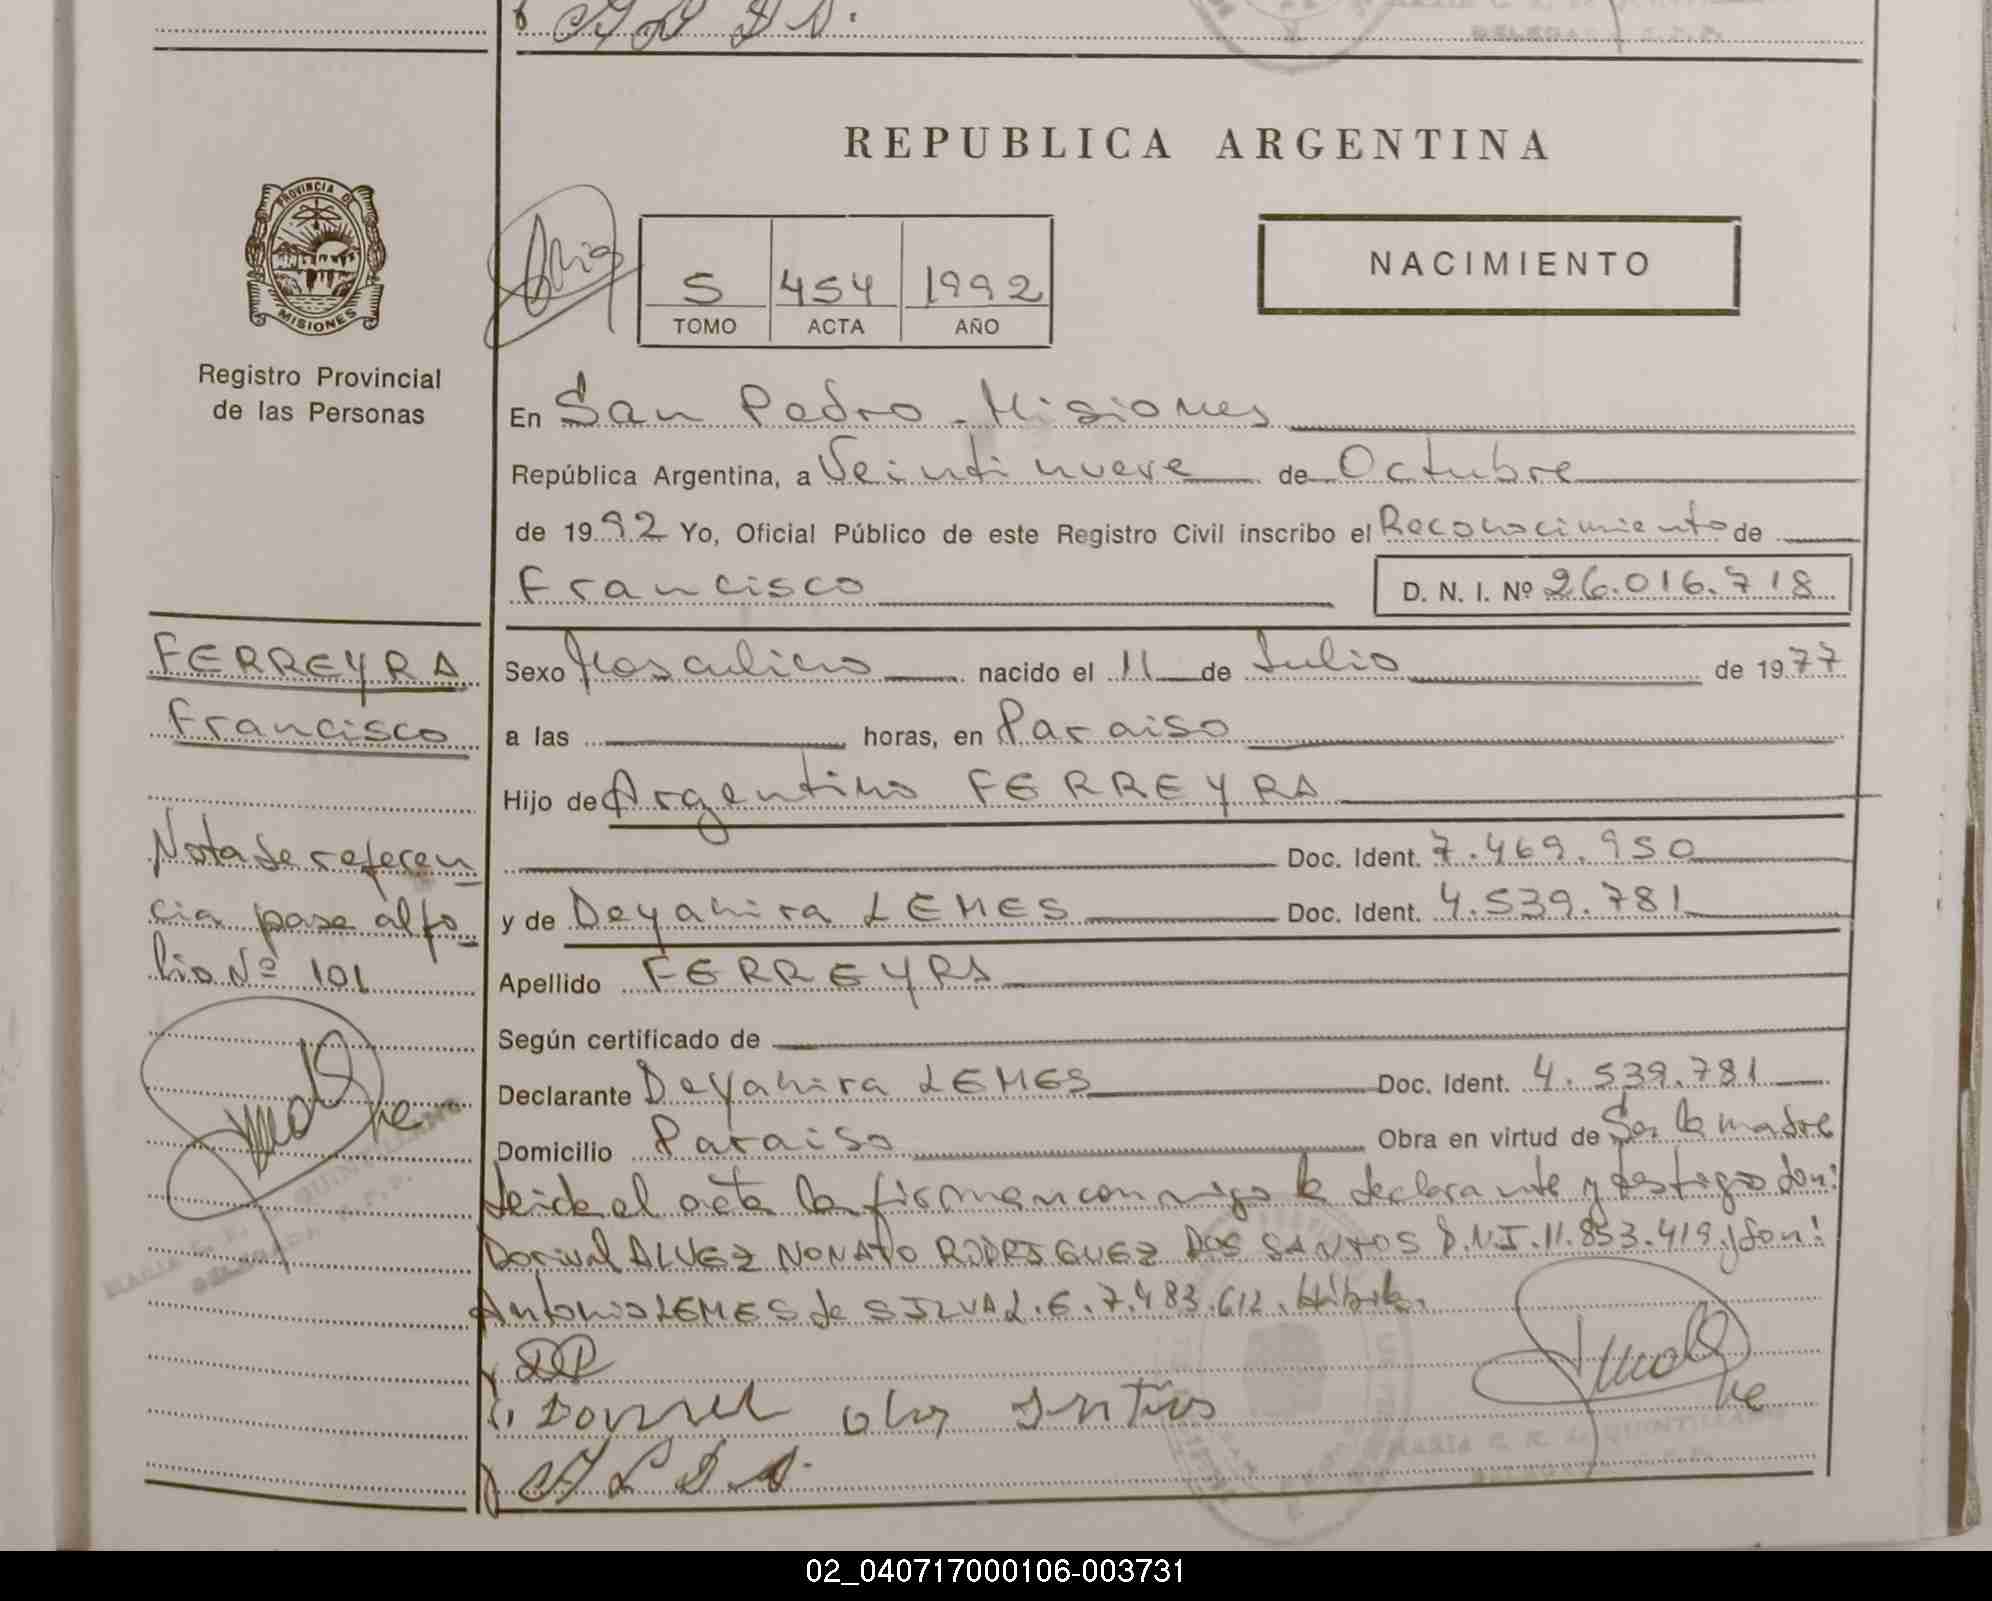 REPUBLICA ARGENTINA
PROVINCIA DE
MISIONES
Registro Provincial
de las Personas
5 454 1992
TOMO ACTA AÑO
NACIMIENTO
En San Pedro - Misiones
República Argentina, a Veintinueve de Octubre
de 1992 Yo, Oficial Público de este Registro Civil inscribo el Reconocimiento de
Francisco D. N. I. Nº 26.016.718
FERREYRA
Francisco
Nota de referen
cia pase al fo-
lio Nº 101
Sexo Masculino nacido el 11 de Julio de 1977
a las horas, en Paraiso
Hijo de Argentino FERREYRA
Doc. Ident. 7.469.950
y de Deyanira LEMES Doc. Ident. 4.539.781
Apellido FERREYRA
Según certificado de
Declarante Deyanira LEMES Doc. Ident. 4.539.781
Domicilio Paraiso Obra en virtud de Ser la madre
Leida el acta la firman conmigo la declarante y testigos don:
Dorival ALVEZ NONATO RODRIGUEZ DOS SANTOS D.N.I. 11.853.419 y don:
Antonio LEMES de SILVA L.E. 7.483.612.
QUINTILLANO
MARIA C. R. de QUINTILLANO
02_040717000106-003731